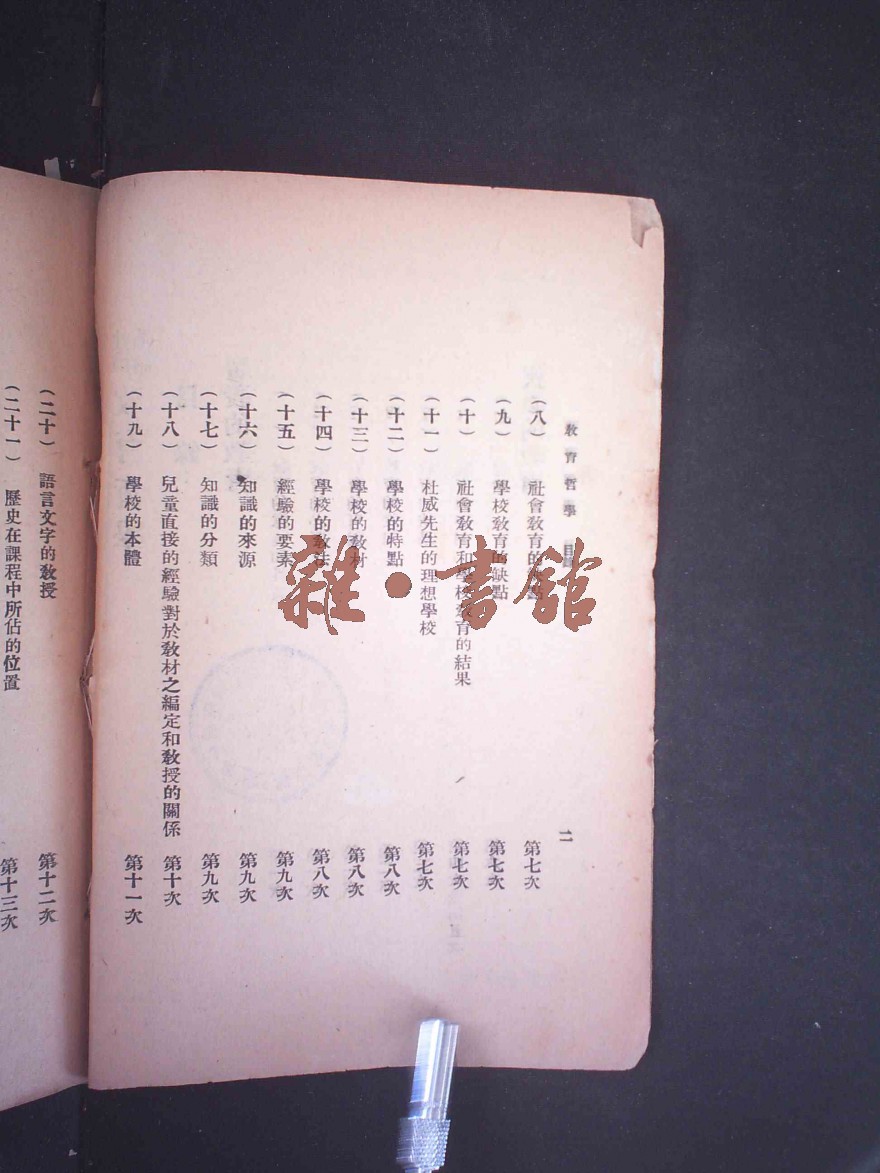 教育哲學 目錄 二
(八) 社會教育的缺點 第七次
(九) 學校教育的缺點 第七次
(十) 社會教育和學校教育的結果 第七次
(十一) 杜威先生的理想學校 第七次
(十二) 學校的特點 第八次
(十三) 學校的教材 第八次
(十四) 學校的教法 第八次
(十五) 經驗的要素 第九次
(十六) 知識的來源 第九次
(十七) 知識的分類 第九次
(十八) 兒童直接的經驗對於教材之編定和教授的關係 第十次
(十九) 學校的本體 第十一次
(二十) 語言文字的教授 第十二次
(二十一) 歷史在課程中所佔的位置 第十三次
雜·書館